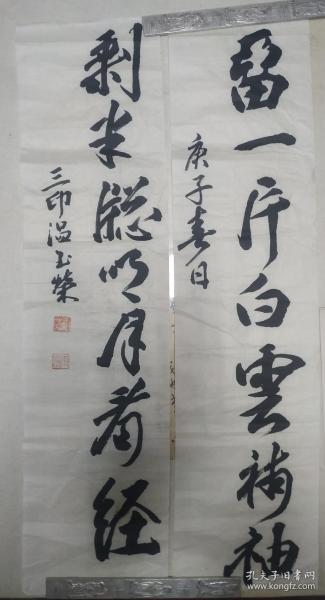 留一片白雲補袖
庚子春日
剩半牕明月看经
三印温玉榮
孔夫子旧书网